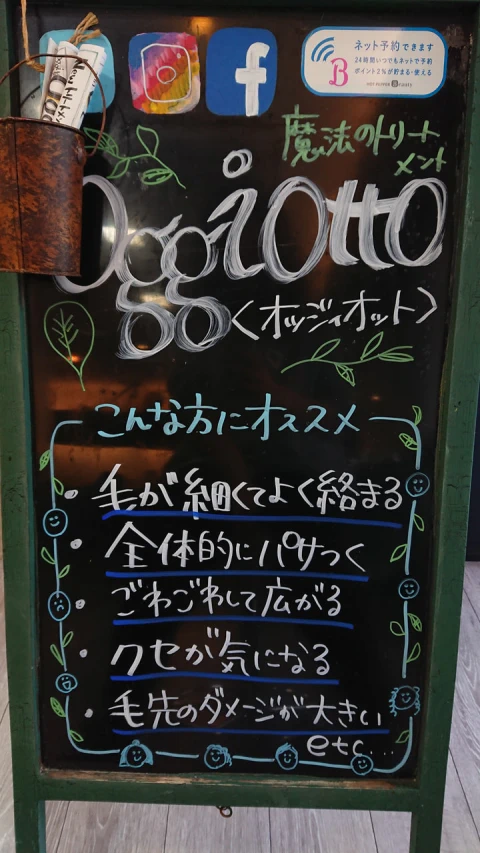 ネット予約できます
24時間いつでもネットで予約
ポイント2%が貯まる・使える
HOT PEPPER Beauty
魔法のトリート
メント
Oggiotto
<オッジィオット>
こんな方にオススメ
・毛が細くてよく絡まる
・全体的にパサつく
・ごわごわして広がる
・クセが気になる
・毛先のダメージが大きい
etc...